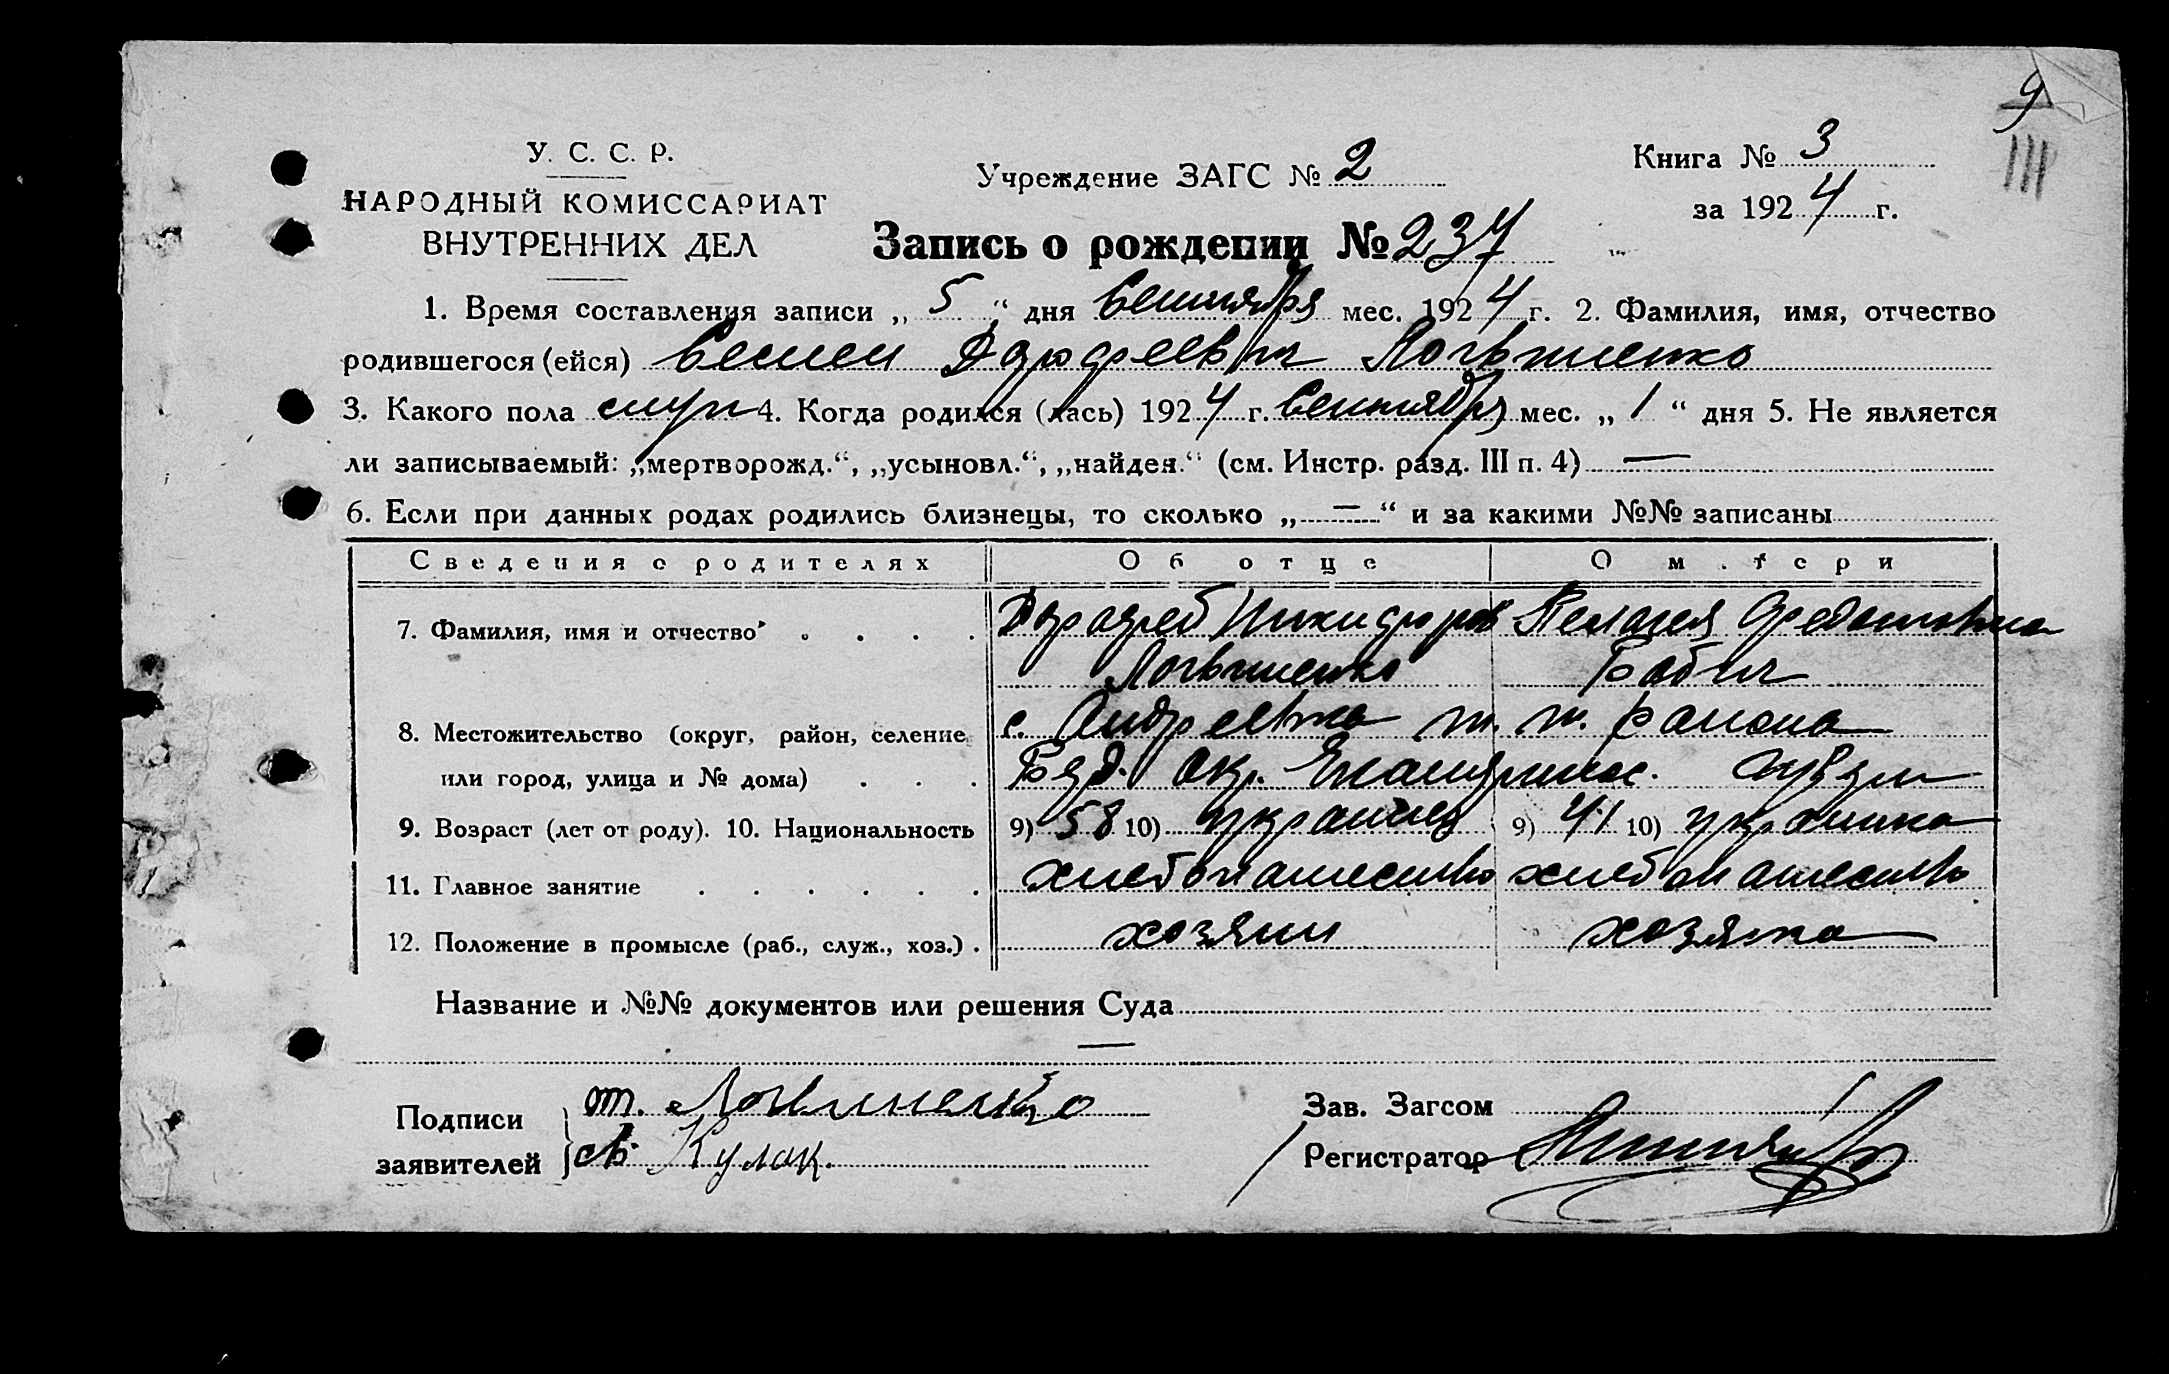 9
III
У. С. С. Р.
НАРОДНЫЙ КОМИССАРИАТ
ВНУТРЕННИХ ДЕЛ
Учреждение ЗАГС № 2
Книга № 3
за 1924 г.
Запись о рождении № 237
1. Время составления записи „ 5 “ дня Сентября мес. 1924 г. 2. Фамилия, имя, отчество
родившегося (ейся) Семен Логвиненко
3. Какого пола муж 4. Когда родился (лась) 1924 г. Сентября мес. „ 1 “ дня 5. Не является
ли записываемый: „мертворожд.“, „усыновл.“, „найден.“ (см. Инстр. разд. III п. 4) —
6. Если при данных родах родились близнецы, то сколько „ — “ и за какими №№ записаны
Сведения о родителях Об отце О матери
7. Фамилия, имя и отчество Пелагея Федотовна
Логвиненко Бабич
8. Местожительство (округ, район, селение с. Андреевка т. ж. района
или город, улица и № дома) Окр. Екатеринос. губерн
9. Возраст (лет от роду). 10. Национальность 9) 58 10) украинец 9) 41 10) украинка
11. Главное занятие хлебопашество хлебопашество
12. Положение в промысле (раб., служ., хоз.) хозяин хозяйка
Название и №№ документов или решения Суда
—
Подписи
заявителей
от. Логвиненко
св. Кулак.
Зав. Загсом
Регистратор